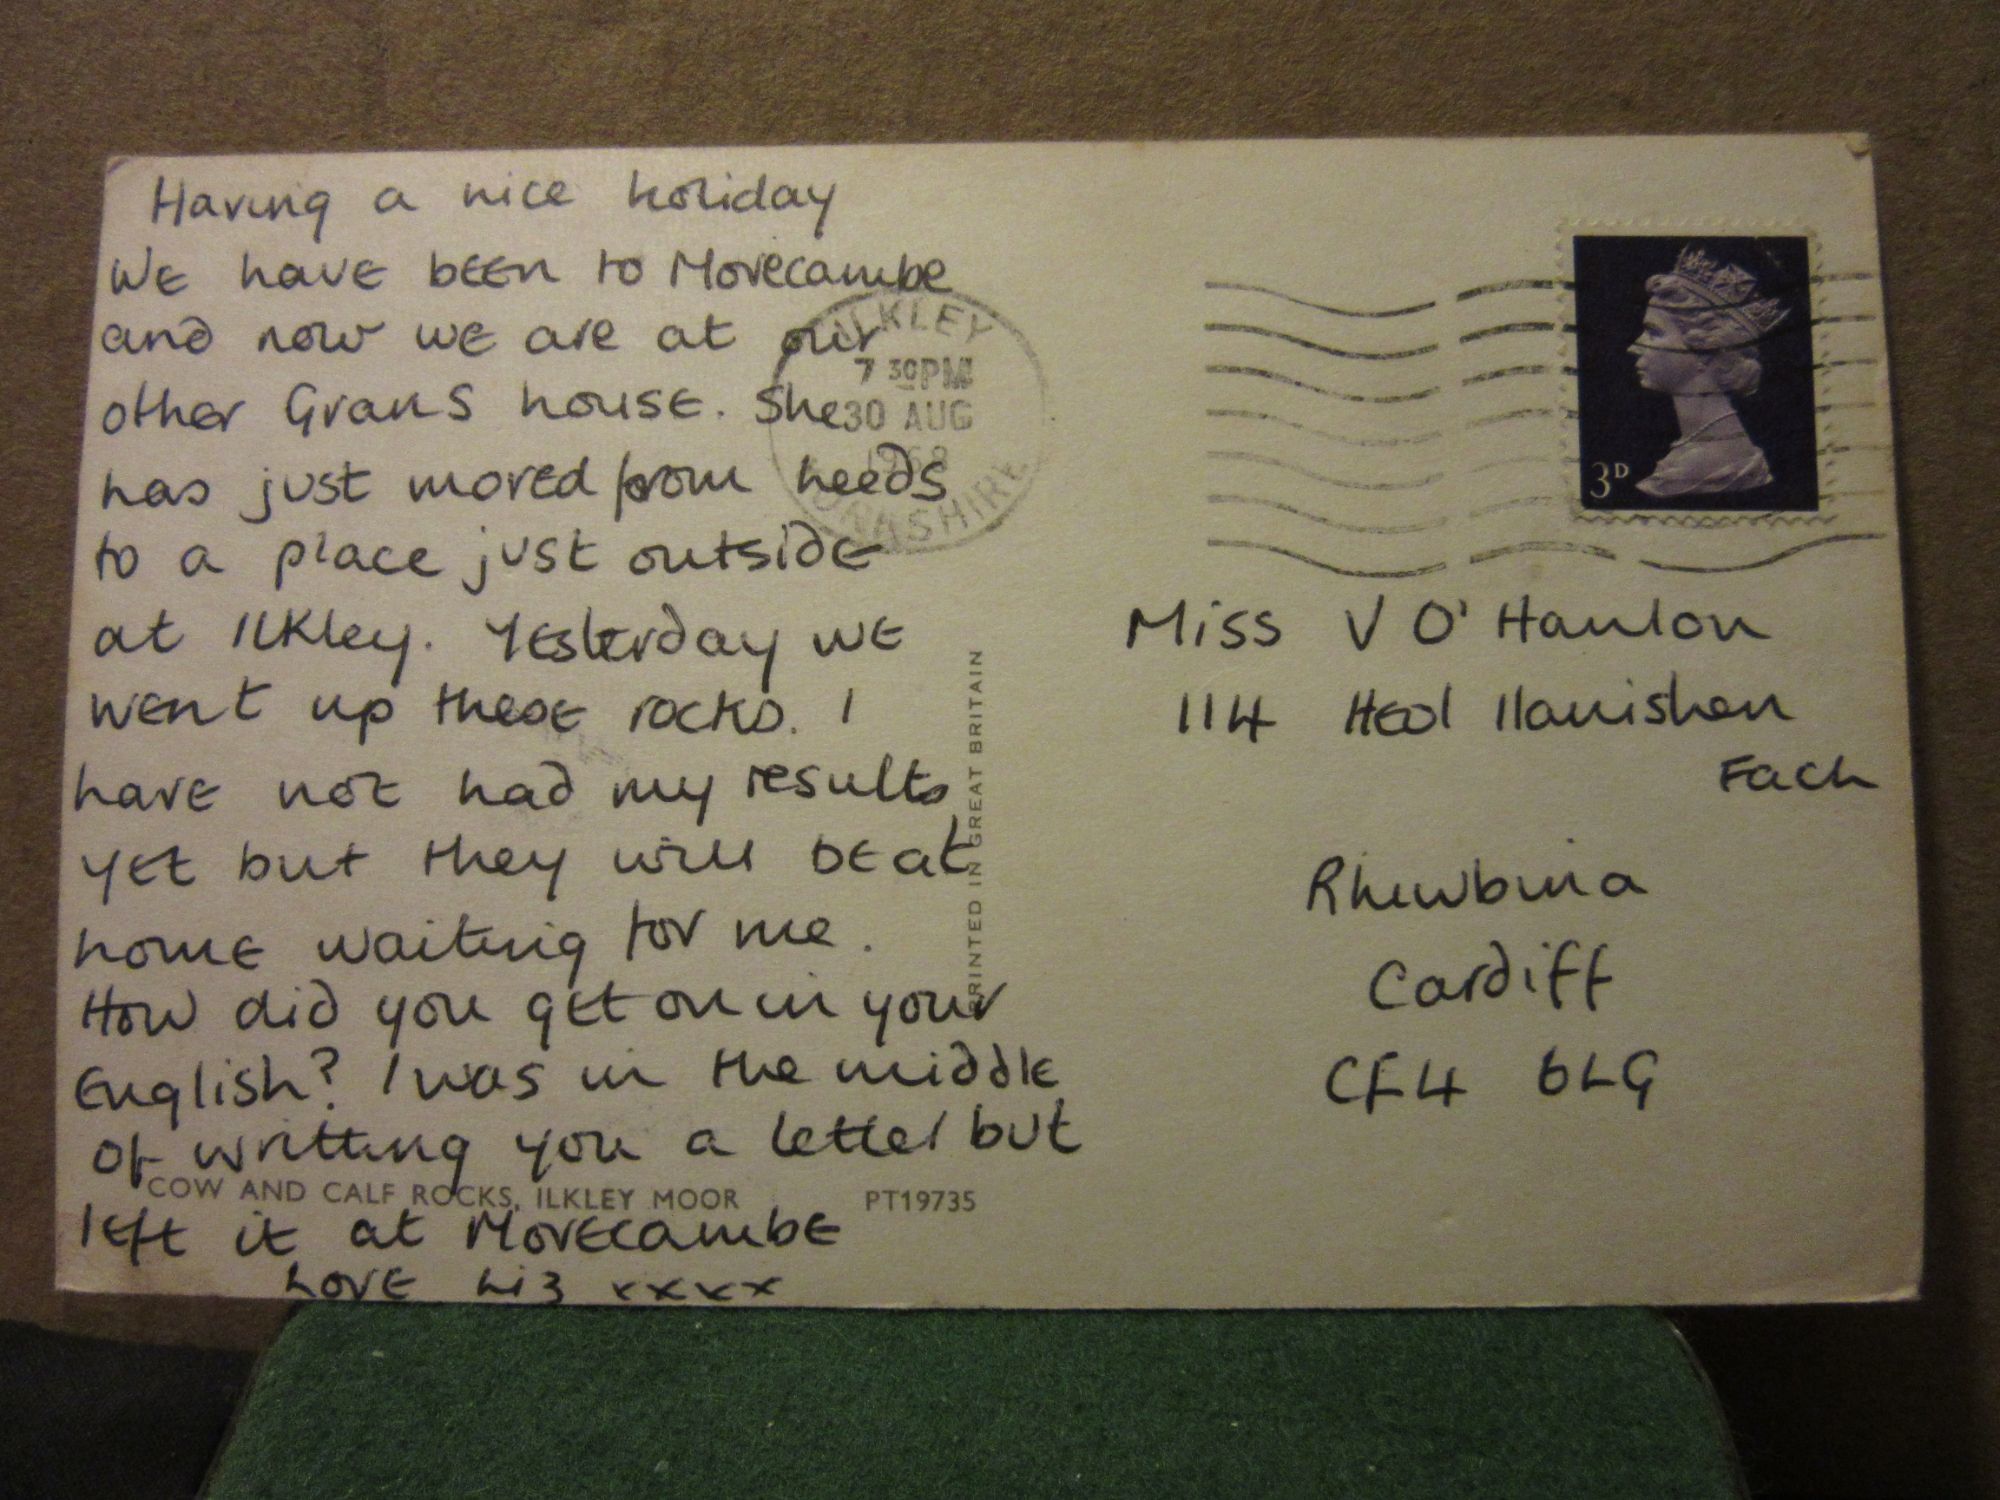 Having a nice holiday
We have been to Morecambe
and now we are at our
other Grans house. She
has just moved from Leeds
to a place just outside
at Ilkley. Yesterday we
went up these rocks. I
have not had my results
yet but they will be at
home waiting for me.
How did you get on in your
English? I was in the middle
of writting you a letter but
left it at Morecambe
Love Liz xxxx
COW AND CALF ROCKS, ILKLEY MOOR PT19735
PRINTED IN GREAT BRITAIN
ILKLEY
7 30PM
30 AUG
1968
YORKSHIRE
3D
Miss V O'Hanlon
114 Heol llanishen
Fach
Rhiwbina
Cardiff
CF4 6LG